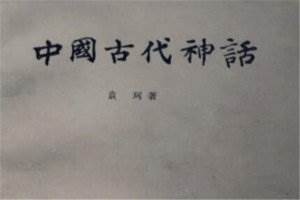 中國古代神話
袁 珂著